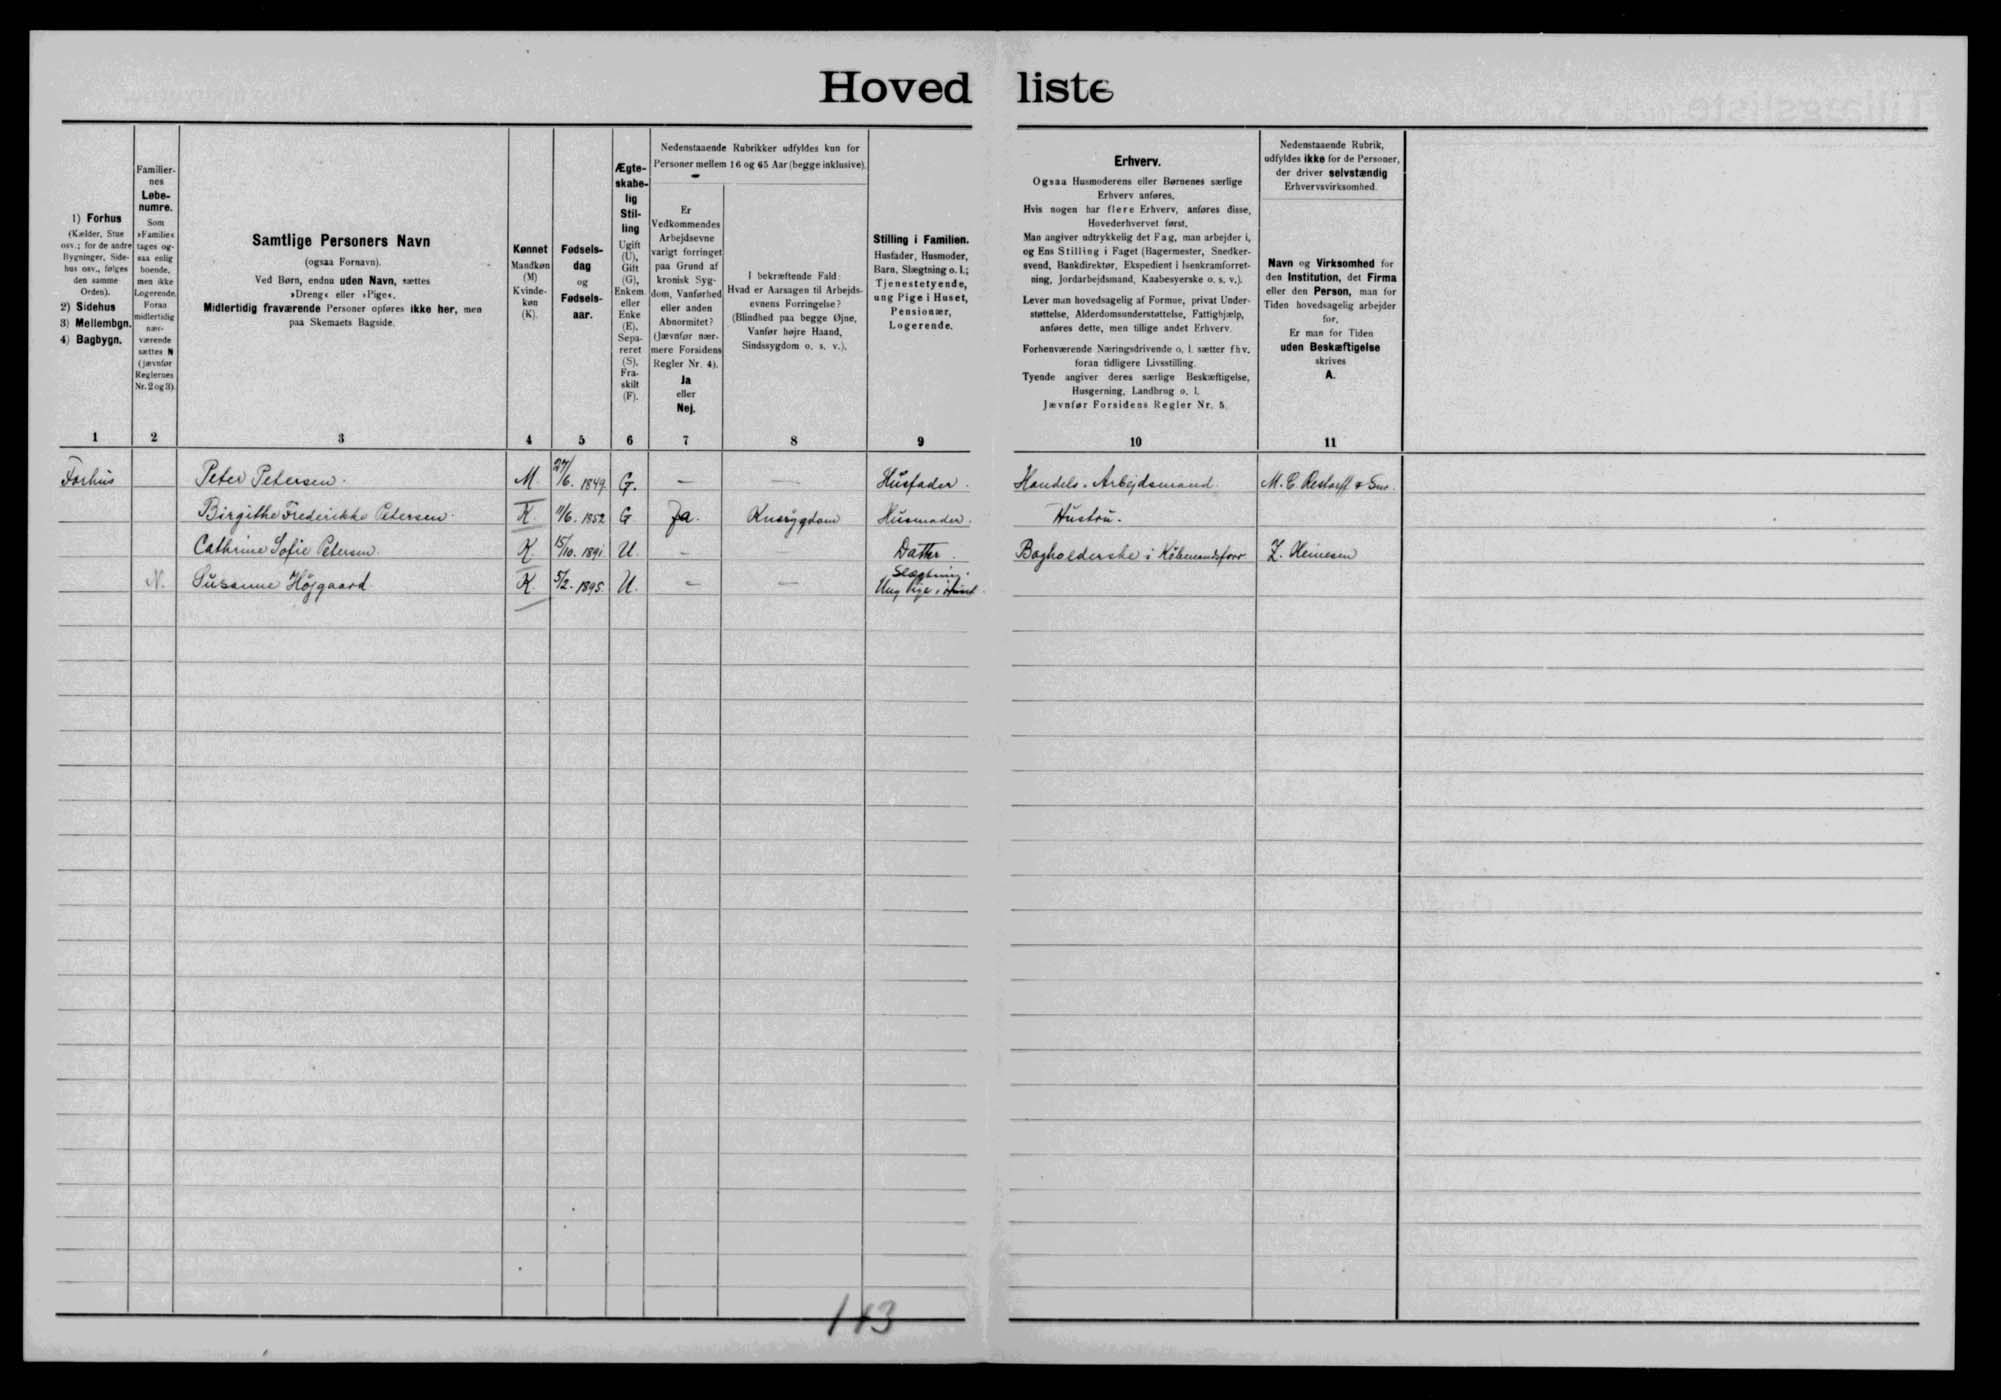 Hovedliste
1) Forhus
(Kælder, Stue
osv.; for de andre
Bygninger, Side-
hus osv., følges
den samme
Orden).
2) Sidehus
3) Mellembgn.
4) Bagbygn.
1
Familier-
nes
Løbe-
numre.
Som
»Familie«
tages og-
saa enlig
boende,
men ikke
Logerende.
Foran
midlertidig
nær-
værende
sættes N
(jævnfør
Reglernes
Nr. 2 og 3).
2
Samtlige Personers Navn
(ogsaa Fornavn).
Ved Børn, endnu uden Navn, sættes
»Dreng« eller »Pige«.
Midlertidig fraværende Personer opføres ikke her, men
paa Skemaets Bagside.
3
Kønnet
Mandkøn
(M)
Kvinde-
køn
(K).
4
Fødsels-
dag
og
Fødsels-
aar.
5
Ægte-
skabe-
lig
Stil-
ling
Ugift
(U),
Gift
(G),
Enkem.
eller
Enke
(E),
Sepa-
reret
(S),
Fra-
skilt
(F).
6
Nedenstaaende Rubrikker udfyldes kun for
Personer mellem 16 og 65 Aar (begge inklusive).
Er
Vedkommendes
Arbejdsevne
varigt forringet
paa Grund af
kronisk Syg-
dom, Vanførhed
eller anden
Abnormitet?
(Jævnfør nær-
mere Forsidens
Regler Nr. 4).
Ja
eller
Nej.
7
I bekræftende Fald:
Hvad er Aarsagen til Arbejds-
evnens Forringelse?
(Blindhed paa begge Øjne,
Vanfør højre Haand,
Sindssygdom o. s. v.).
8
Stilling i Familien.
Husfader, Husmoder,
Barn, Slægtning o. l.;
Tjenestetyende,
ung Pige i Huset,
Pensionær,
Logerende.
9
Erhverv.
Ogsaa Husmoderens eller Børnenes særlige
Erhverv anføres.
Hvis nogen har flere Erhverv, anføres disse,
Hovederhvervet først.
Man angiver udtrykkelig det Fag, man arbejder i,
og Ens Stilling i Faget (Bagermester, Snedker-
svend, Bankdirektør, Ekspedient i Isenkramforret-
ning, Jordarbejdsmand, Kaabesyerske o. s. v.).
Lever man hovedsagelig af Formue, privat Under-
støttelse, Alderdomsunderstøttelse, Fattighjælp,
anføres dette, men tillige andet Erhverv.
Forhenværende Næringsdrivende o. l. sætter fhv.
foran tidligere Livsstilling.
Tyende angiver deres særlige Beskæftigelse,
Husgerning, Landbrug o. l.
Jævnfør Forsidens Regler Nr. 5.
10
Nedenstaaende Rubrik,
udfyldes ikke for de Personer,
der driver selvstændig
Erhvervsvirksomhed.
Navn og Virksomhed for
den Institution, det Firma
eller den Person, man for
Tiden hovedsagelig arbejder
for.
Er man for Tiden
uden Beskæftigelse
skrives
A.
11
Forhus Peter Petersen. M. 27/6. 1849. G. — — Husfader. Handels-Arbejdsmand M. C. Restorff & Snr.
Birgithe Frederikke Petersen. K. 11/6. 1852 G Ja. Knæsygdom Husmoder. Hustru.
Cathrine Sofie Petersen. K. 15/10. 1891 U. — Datter. Bogholderske i Købmandsforr. Z. Heinesen
N. Susanne Højgaard. K. 5/2. 1895. U. — — Slægtning.
Ung Pige i Huset.
113